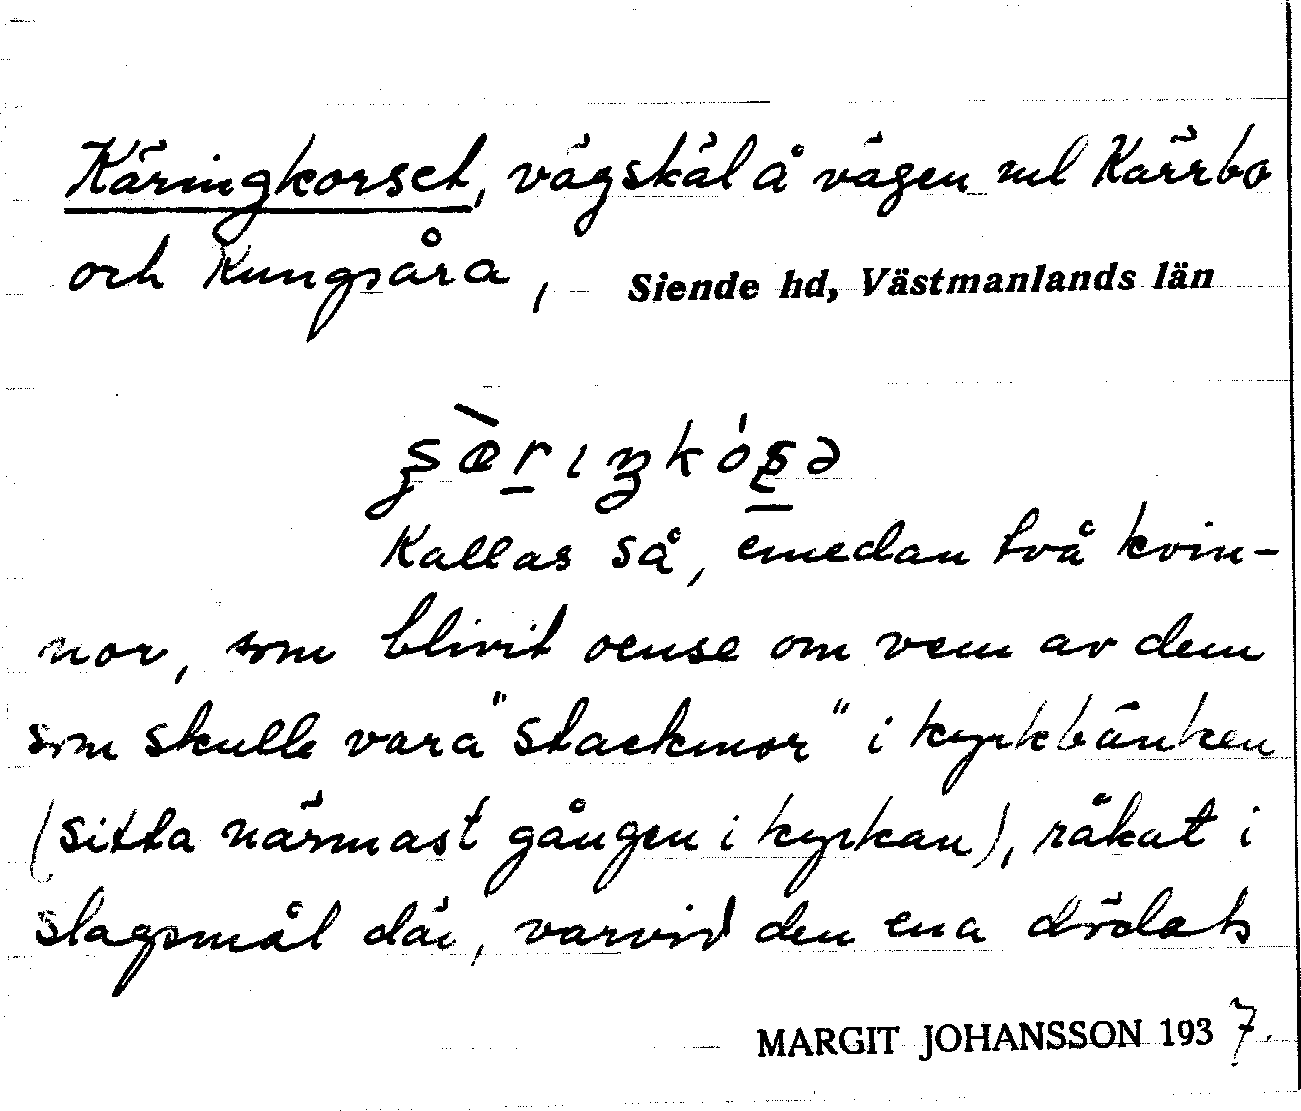 Käringkorset, vägskäl å vägen ml Kärrbo
och Kungsåra, Siende hd, Västmanlands län
Kallas så, emedan två kvin-
nor, som blivit oense om vem av dem
som skulle vara "stackmor" i kyrkbänken
(sitta närmast gången i kyrkan), råkat i
slagsmål där, varvid den ena dödats
MARGIT JOHANSSON 1937.